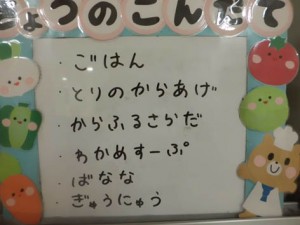 きょうのこんだて
・ごはん
・とりのからあげ
・からふるさらだ
・わかめすーぷ
・ばなな
・ぎゅうにゅう